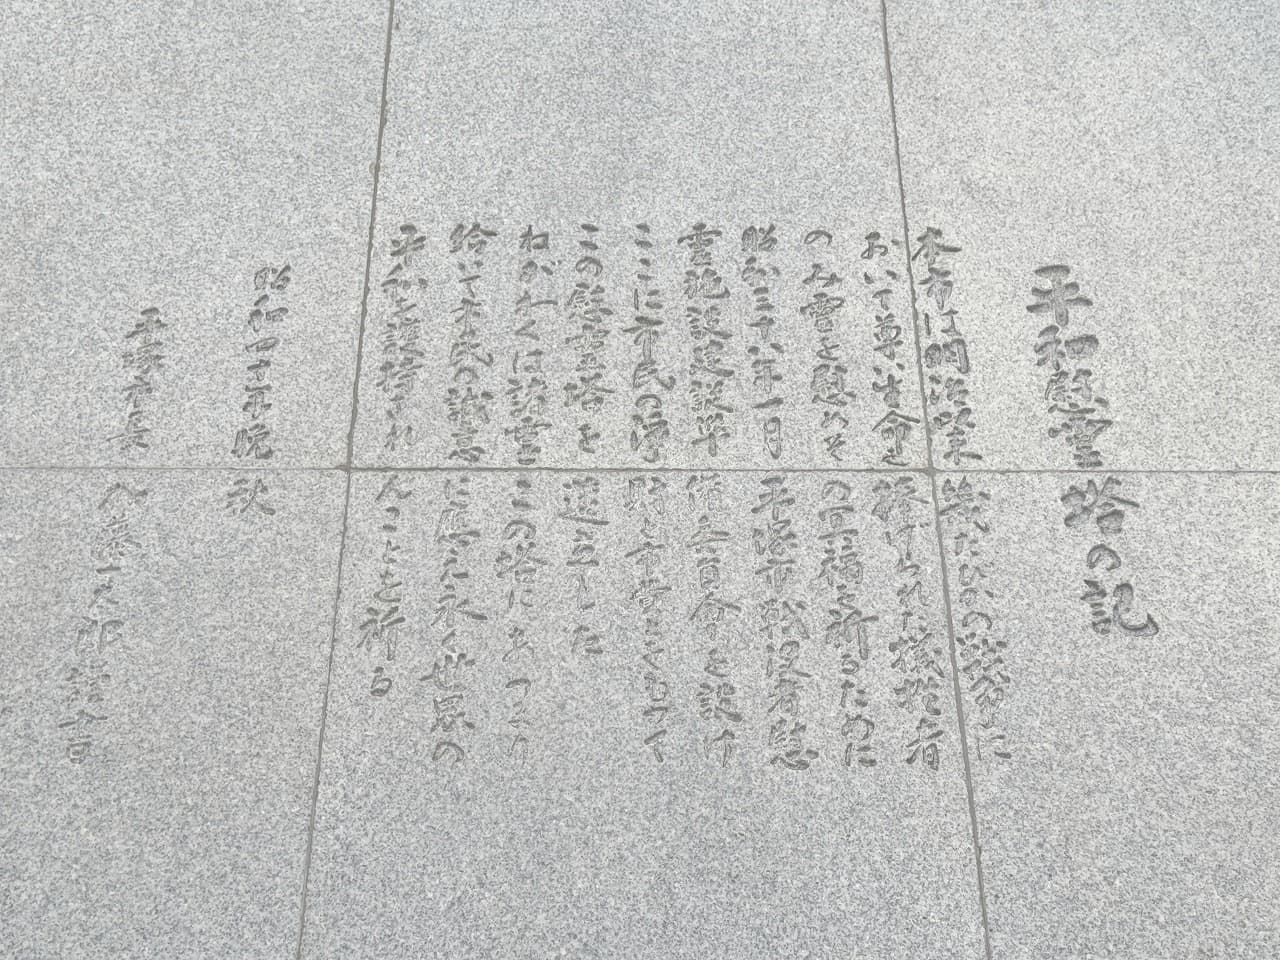 平和慰霊塔の記
本市は明治以来幾たびかの戦役に
おいて尊い生命を捧げられた犠牲者
のみ霊を慰めその冥福を祈るために
昭和三十六年一月平塚市戦没者慰
霊施設建設準備委員会を設け
ここに市民の浄財と千昔をこめて
この慰霊塔を建立した
ねがわくは諸霊この塔にあつまり
給いて市民の誠意に応え永く世界の
平和を護持されんことを祈る
昭和四十年晩秋
平塚市長 加藤一太郎謹書